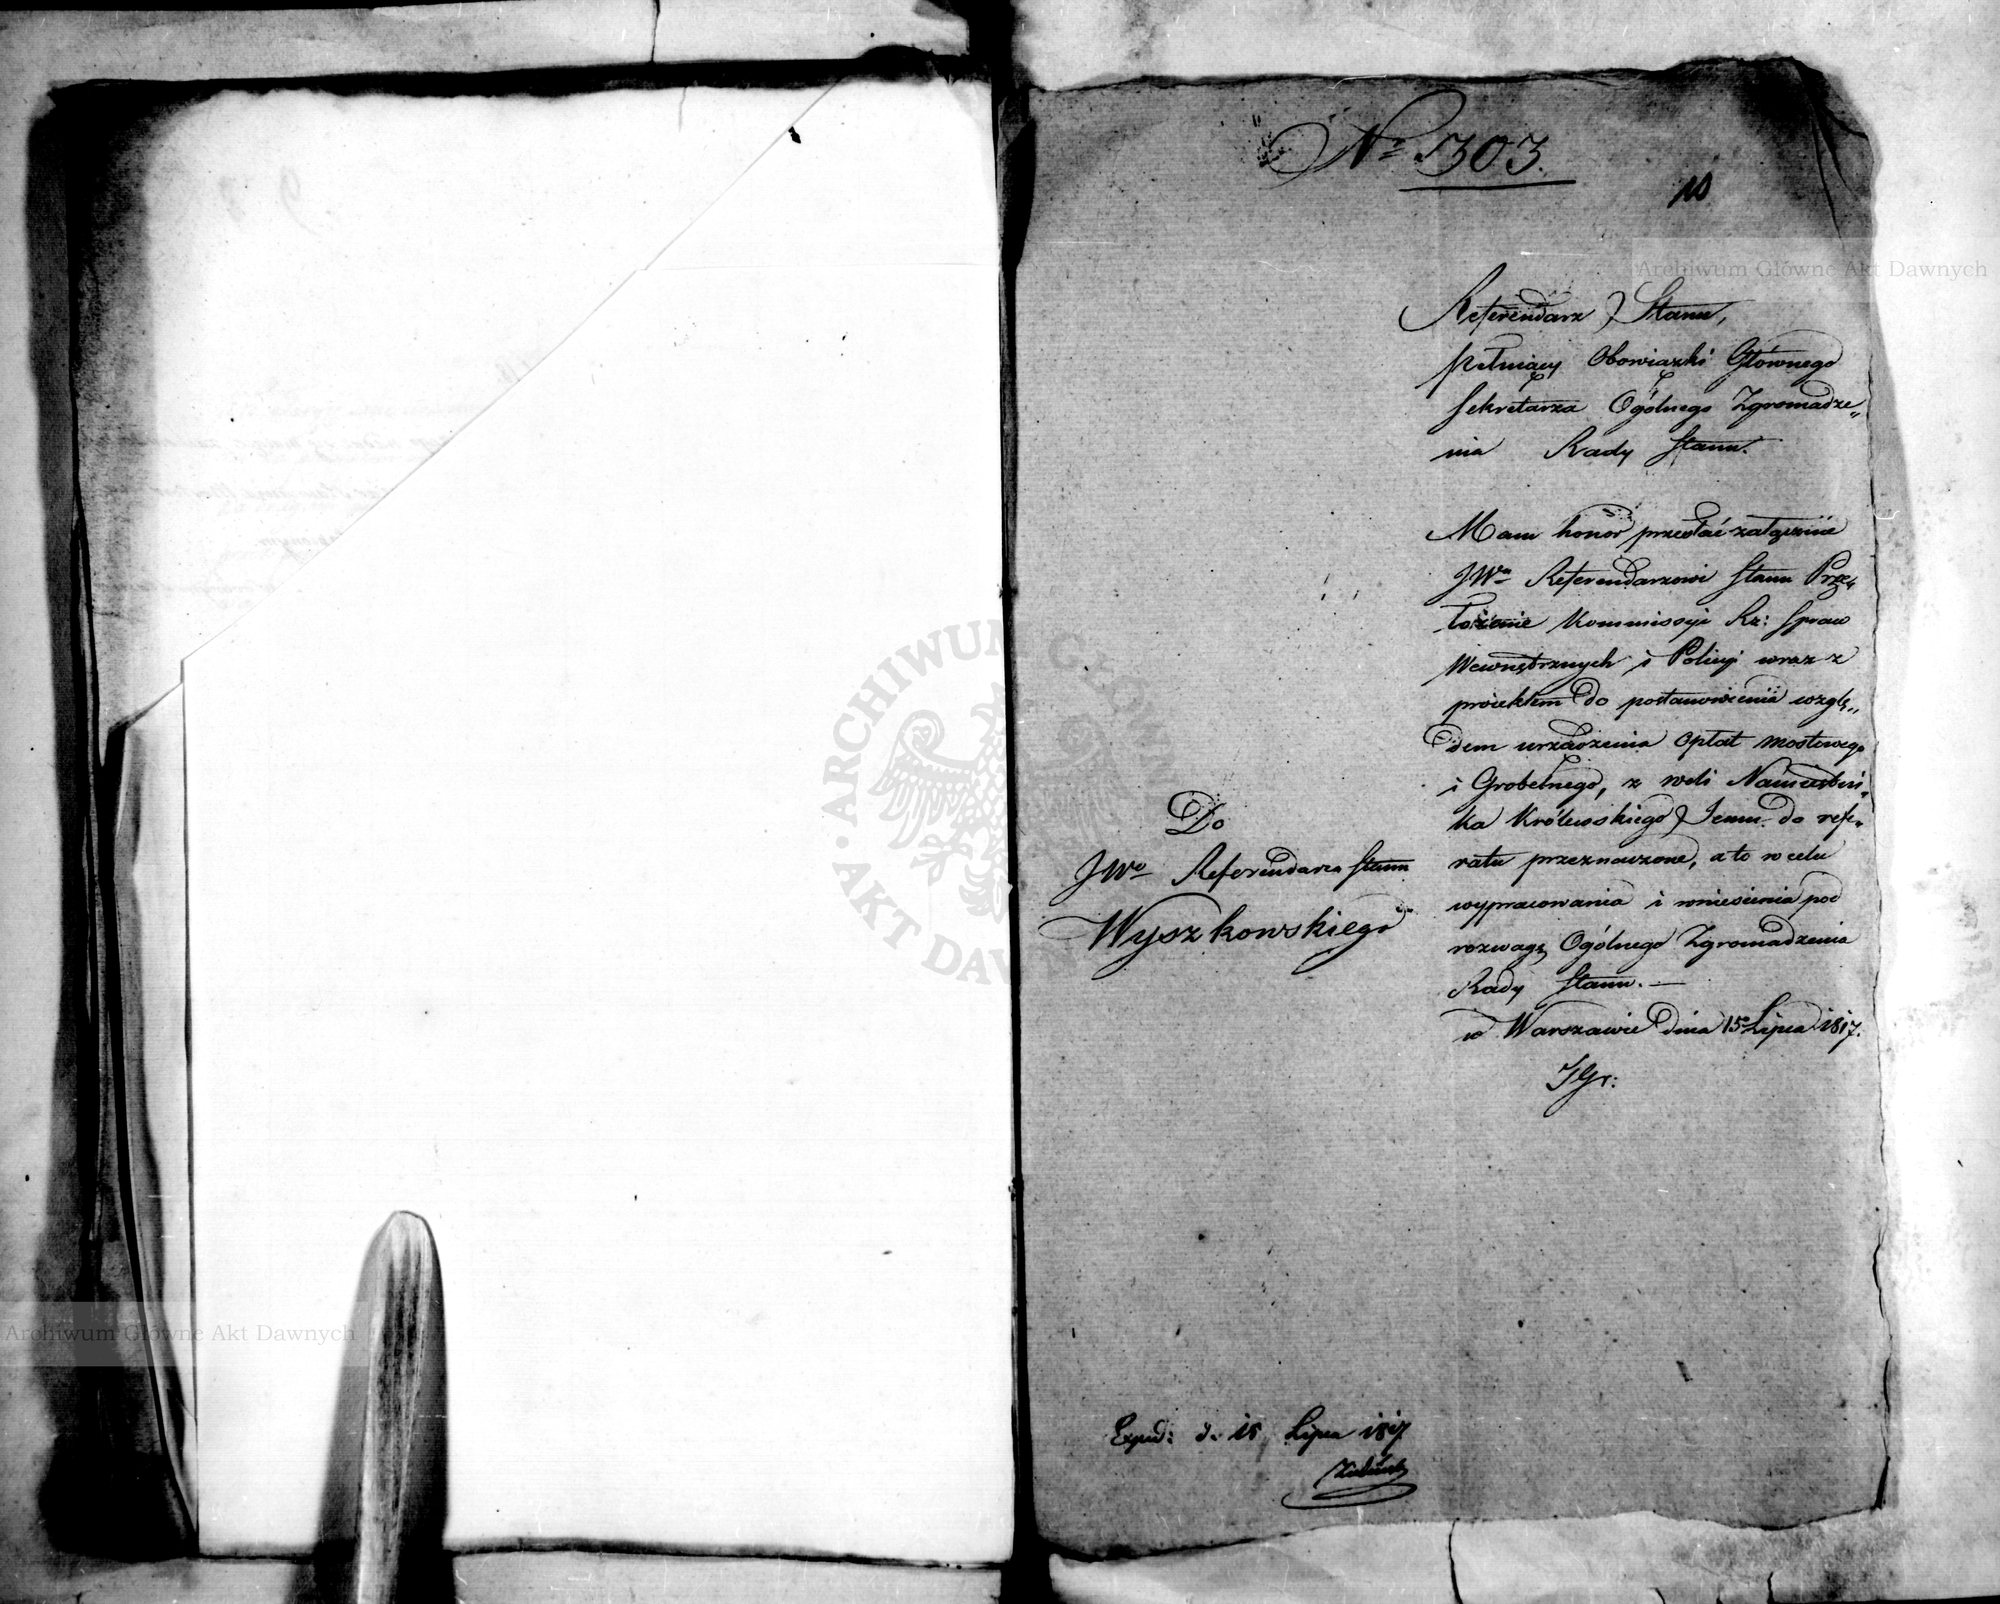 Nº 1303.
10
Referendarz Stanu,
pełniący Obowiązki Głównego
Sekretarza Ogólnego Zgromadze„
nia Rady Stanu.
Mam honor przesłać załącznie
JWu Referendarzowi Stanu Prze„
łożenie Kommissyi Rz: Spraw
Wewnętrznych i Policyi wraz z
proiektem do postanowienia wzglę„
dem urządzenia Opłat mostowego
i Grobelnego, z woli Namiestni„
ka Królewskiego Jemu do refe„
ratu przeznaczone, a to w celu
wypracowania i wniesienia pod
rozwagę Ogólnego Zgromadzenia
Rady Stanu. —
w Warszawie dnia 15 Lipca 1817.
Do
JWo Referendarza Stanu
Wyszkowskiego
Exped: d. 18 Lipca 1817
Archiwum Główne Akt Dawnych
Archiwum Główne Akt Dawnych
ARCHIWUM GŁÓWNE AKT DAWNYCH